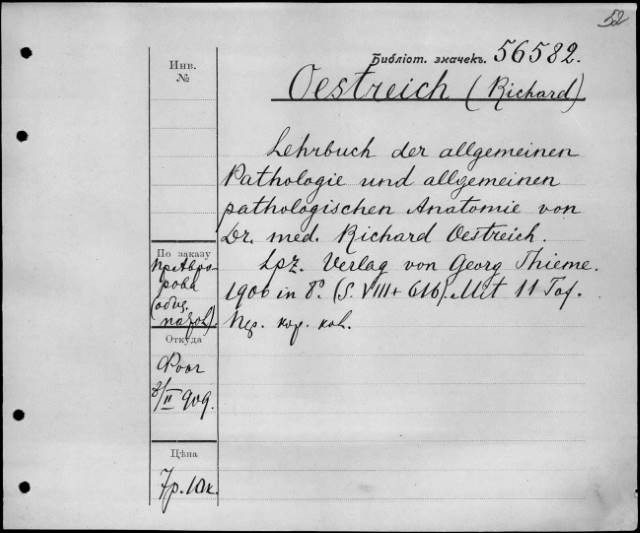 52
Библіот. значекъ. 56582.
Инв.
№
Oestreich (Richard)
Lehrbuch der allgemeinen
Pathologie und allgemeinen
pathologischen Anatomie von
Dr. med. Richard Oestreich.
Lpz. Verlag von Georg Thieme.
1906 in 8º. (S. VIII + 616). Mit 11 Taf.
кор.
По заказу
рова
Откуда
8/II 909.
Цѣна
7р. 10к.